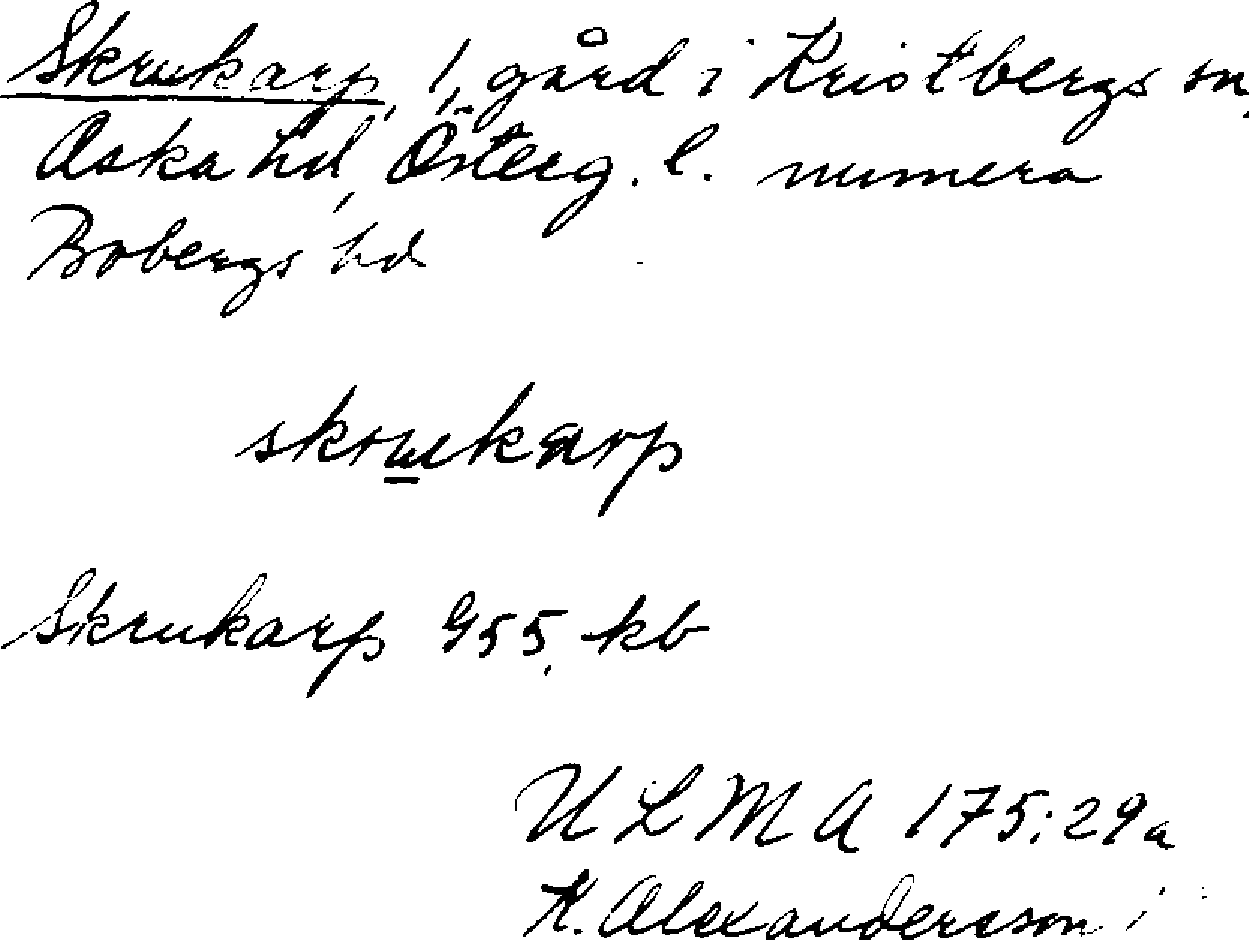 Skrukarp, 1, gård i Kristbergs sn,
Aska hd, Österg. l. numera
Bobergs hd
skrukarp
Skrukarp 955, kb
ULMA 175:29a
K. Alexandersson